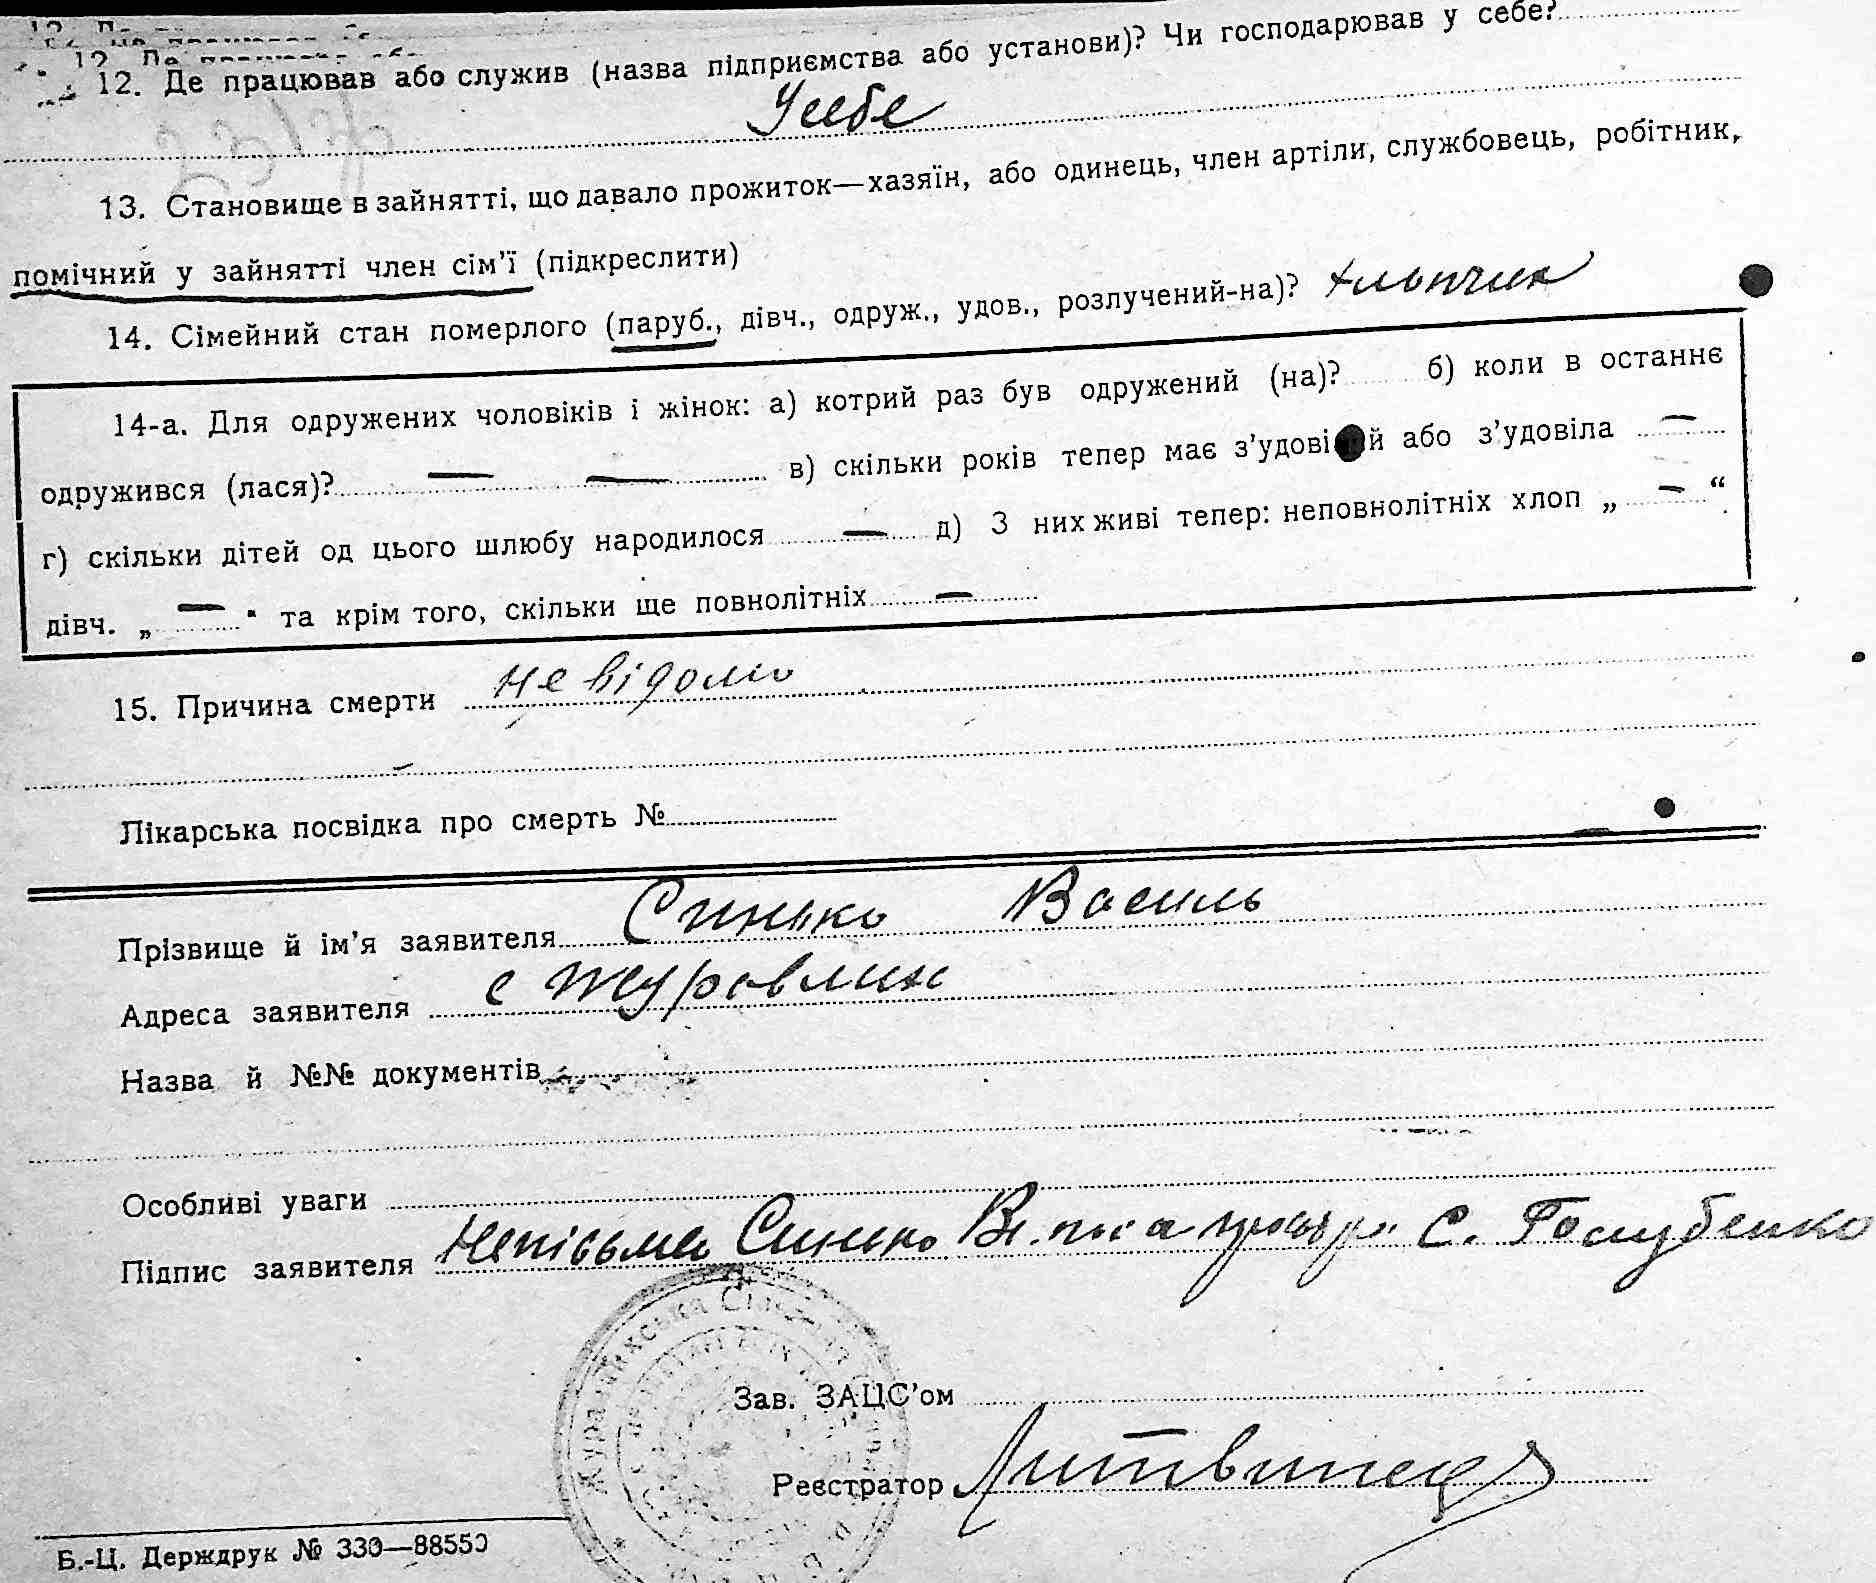 12. Де працював або служив (назва підприємства або установи)? Чи господарював у себе?
У себе
13. Становище в зайнятті, що давало прожиток—хазяїн, або одинець, член артіли, службовець, робітник,
помічний у зайнятті член сім'ї (підкреслити)
14. Сімейний стан померлого (паруб., дівч., одруж., удов., розлучений-на)? хлопчик
14-а. Для одружених чоловіків і жінок: а) котрий раз був одружений (на)? б) коли в останнє
одружився (лася)? — — в) скільки років тепер має з'удові й або з'удовіла —
г) скільки дітей од цього шлюбу народилося — д) З них живі тепер: неповнолітніх хлоп „ — “
дівч. „ — " та крім того, скільки ще повнолітніх —
15. Причина смерти не відомо
Лікарська посвідка про смерть №
Прізвище й ім'я заявителя Синько Василь
Адреса заявителя с Журовлин
Назва й №№ документів
Особливі уваги
Підпис заявителя Синько С. Голубенко
Зав. ЗАЦС'ом
Реєстратор Литвинец
Б.-Ц. Держдрук № 330—88550